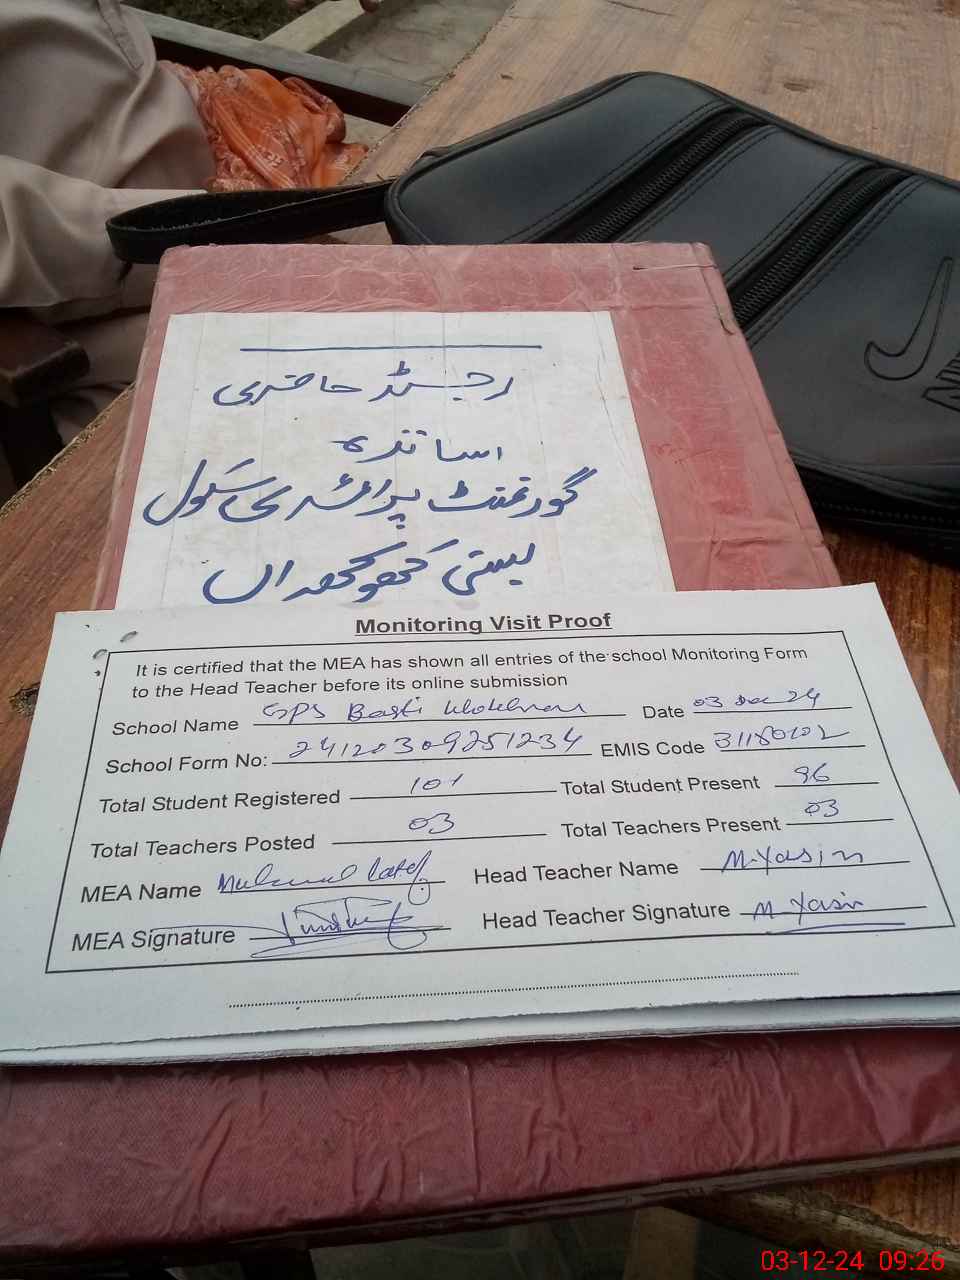 رجسٹر حاضری
اساتذہ
گورنمنٹ پرائمری سکول
بستی کھوکھراں
Monitoring Visit Proof
It is certified that the MEA has shown all entries of the school Monitoring Form
to the Head Teacher before its online submission
School Name GPS Basti Date 03 Dec 24
School Form No: 24120309251234 EMIS Code
Total Student Registered 101 Total Student Present 96
Total Teachers Posted 03 Total Teachers Present 03
MEA Name Head Teacher Name M.Yasin
MEA Signature Head Teacher Signature M Yasin
03-12-24 09:26